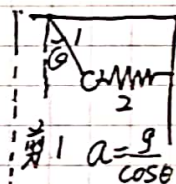 1
θ
2
1 a=g/cosθ